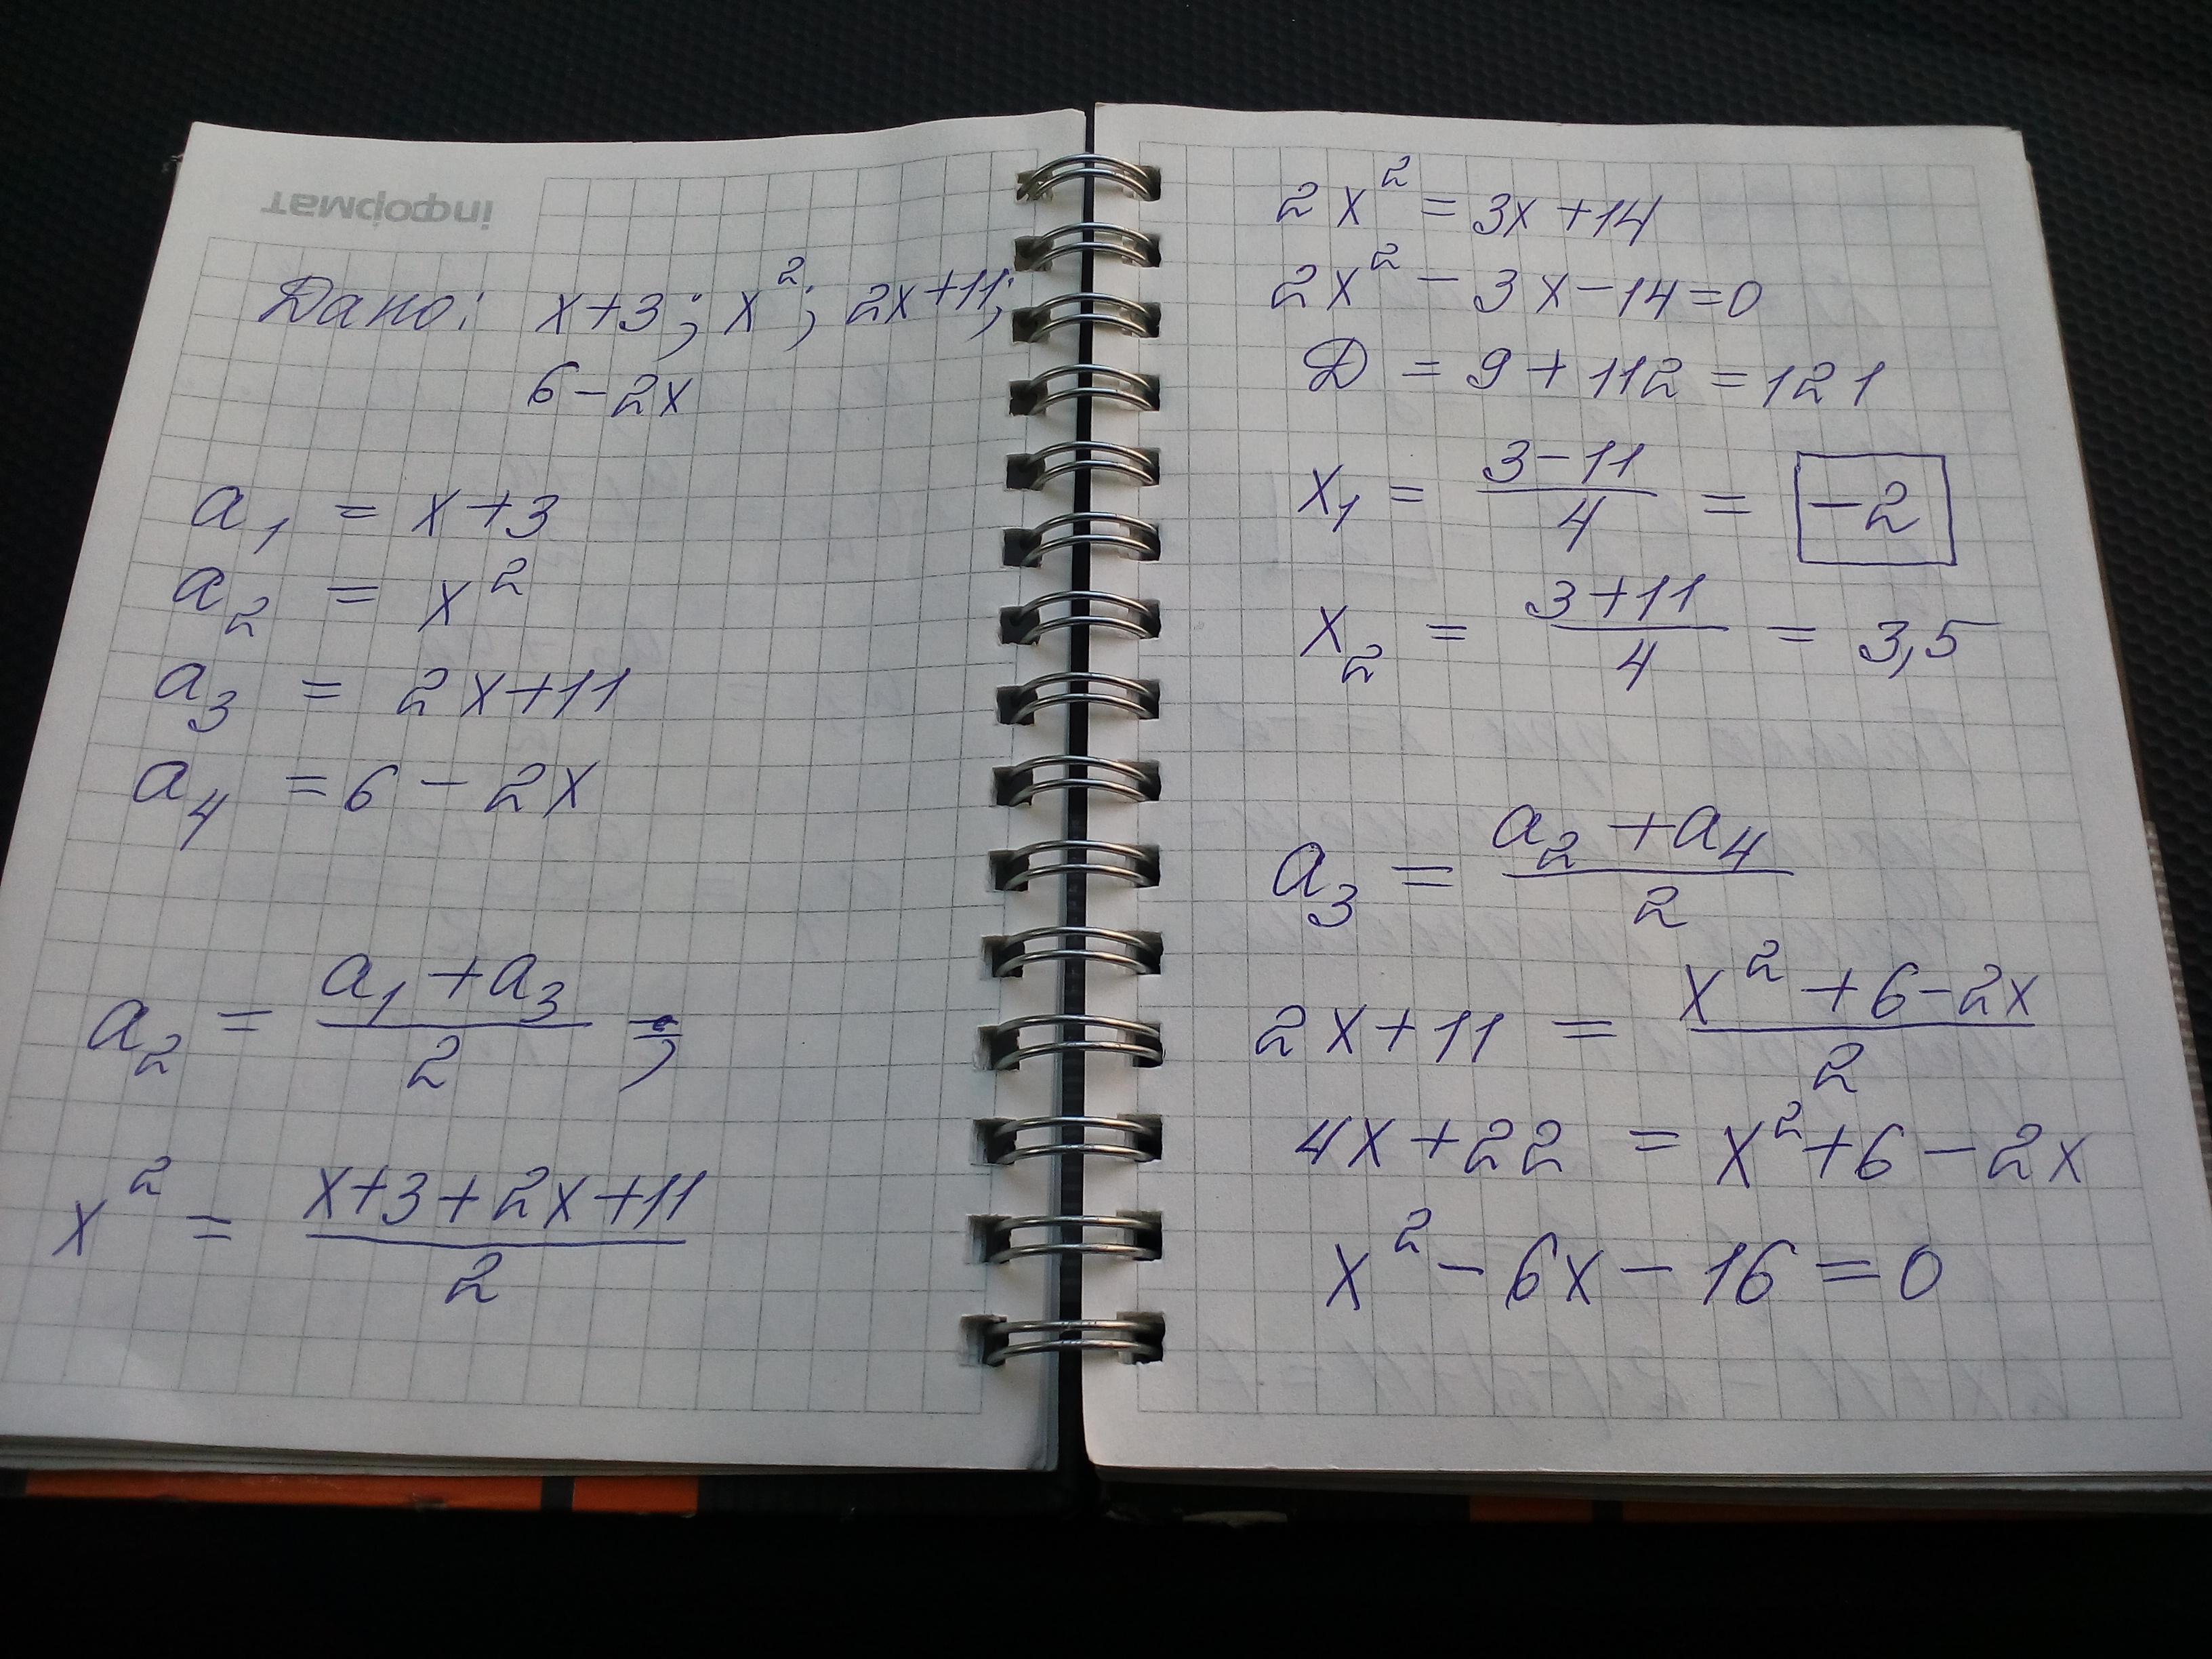 інформат
Дано: x+3; x²; 2x+11;
6-2x
a₁ = x+3
a₂ = x²
a₃ = 2x+11
a₄ = 6-2x
a₂ = (a₁+a₃)/2 ;
x² = (x+3+2x+11)/2
2x² = 3x+14
2x² - 3x - 14 = 0
Д = 9 + 112 = 121
x₁ = (3-11)/4 = -2
x₂ = (3+11)/4 = 3,5
a₃ = (a₂+a₄)/2
2x+11 = (x²+6-2x)/2
4x+22 = x²+6-2x
x²-6x-16=0